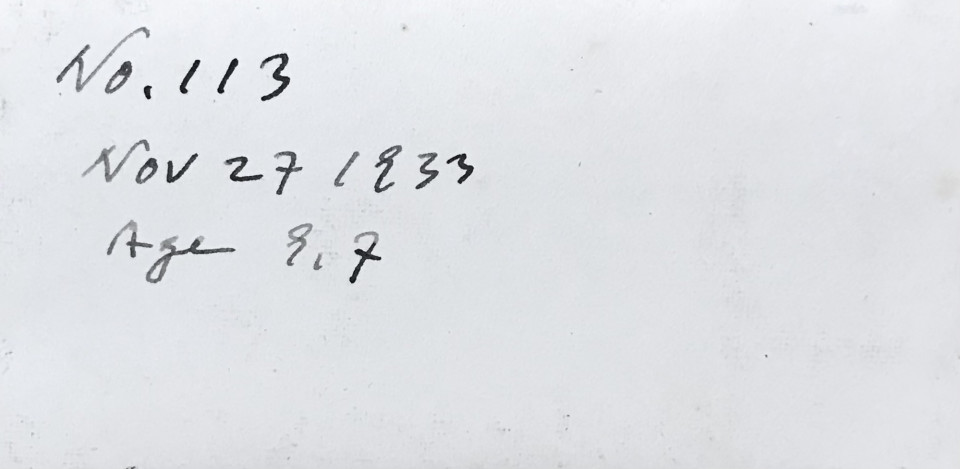 No. 113
Nov 27 1933
Age 9.7